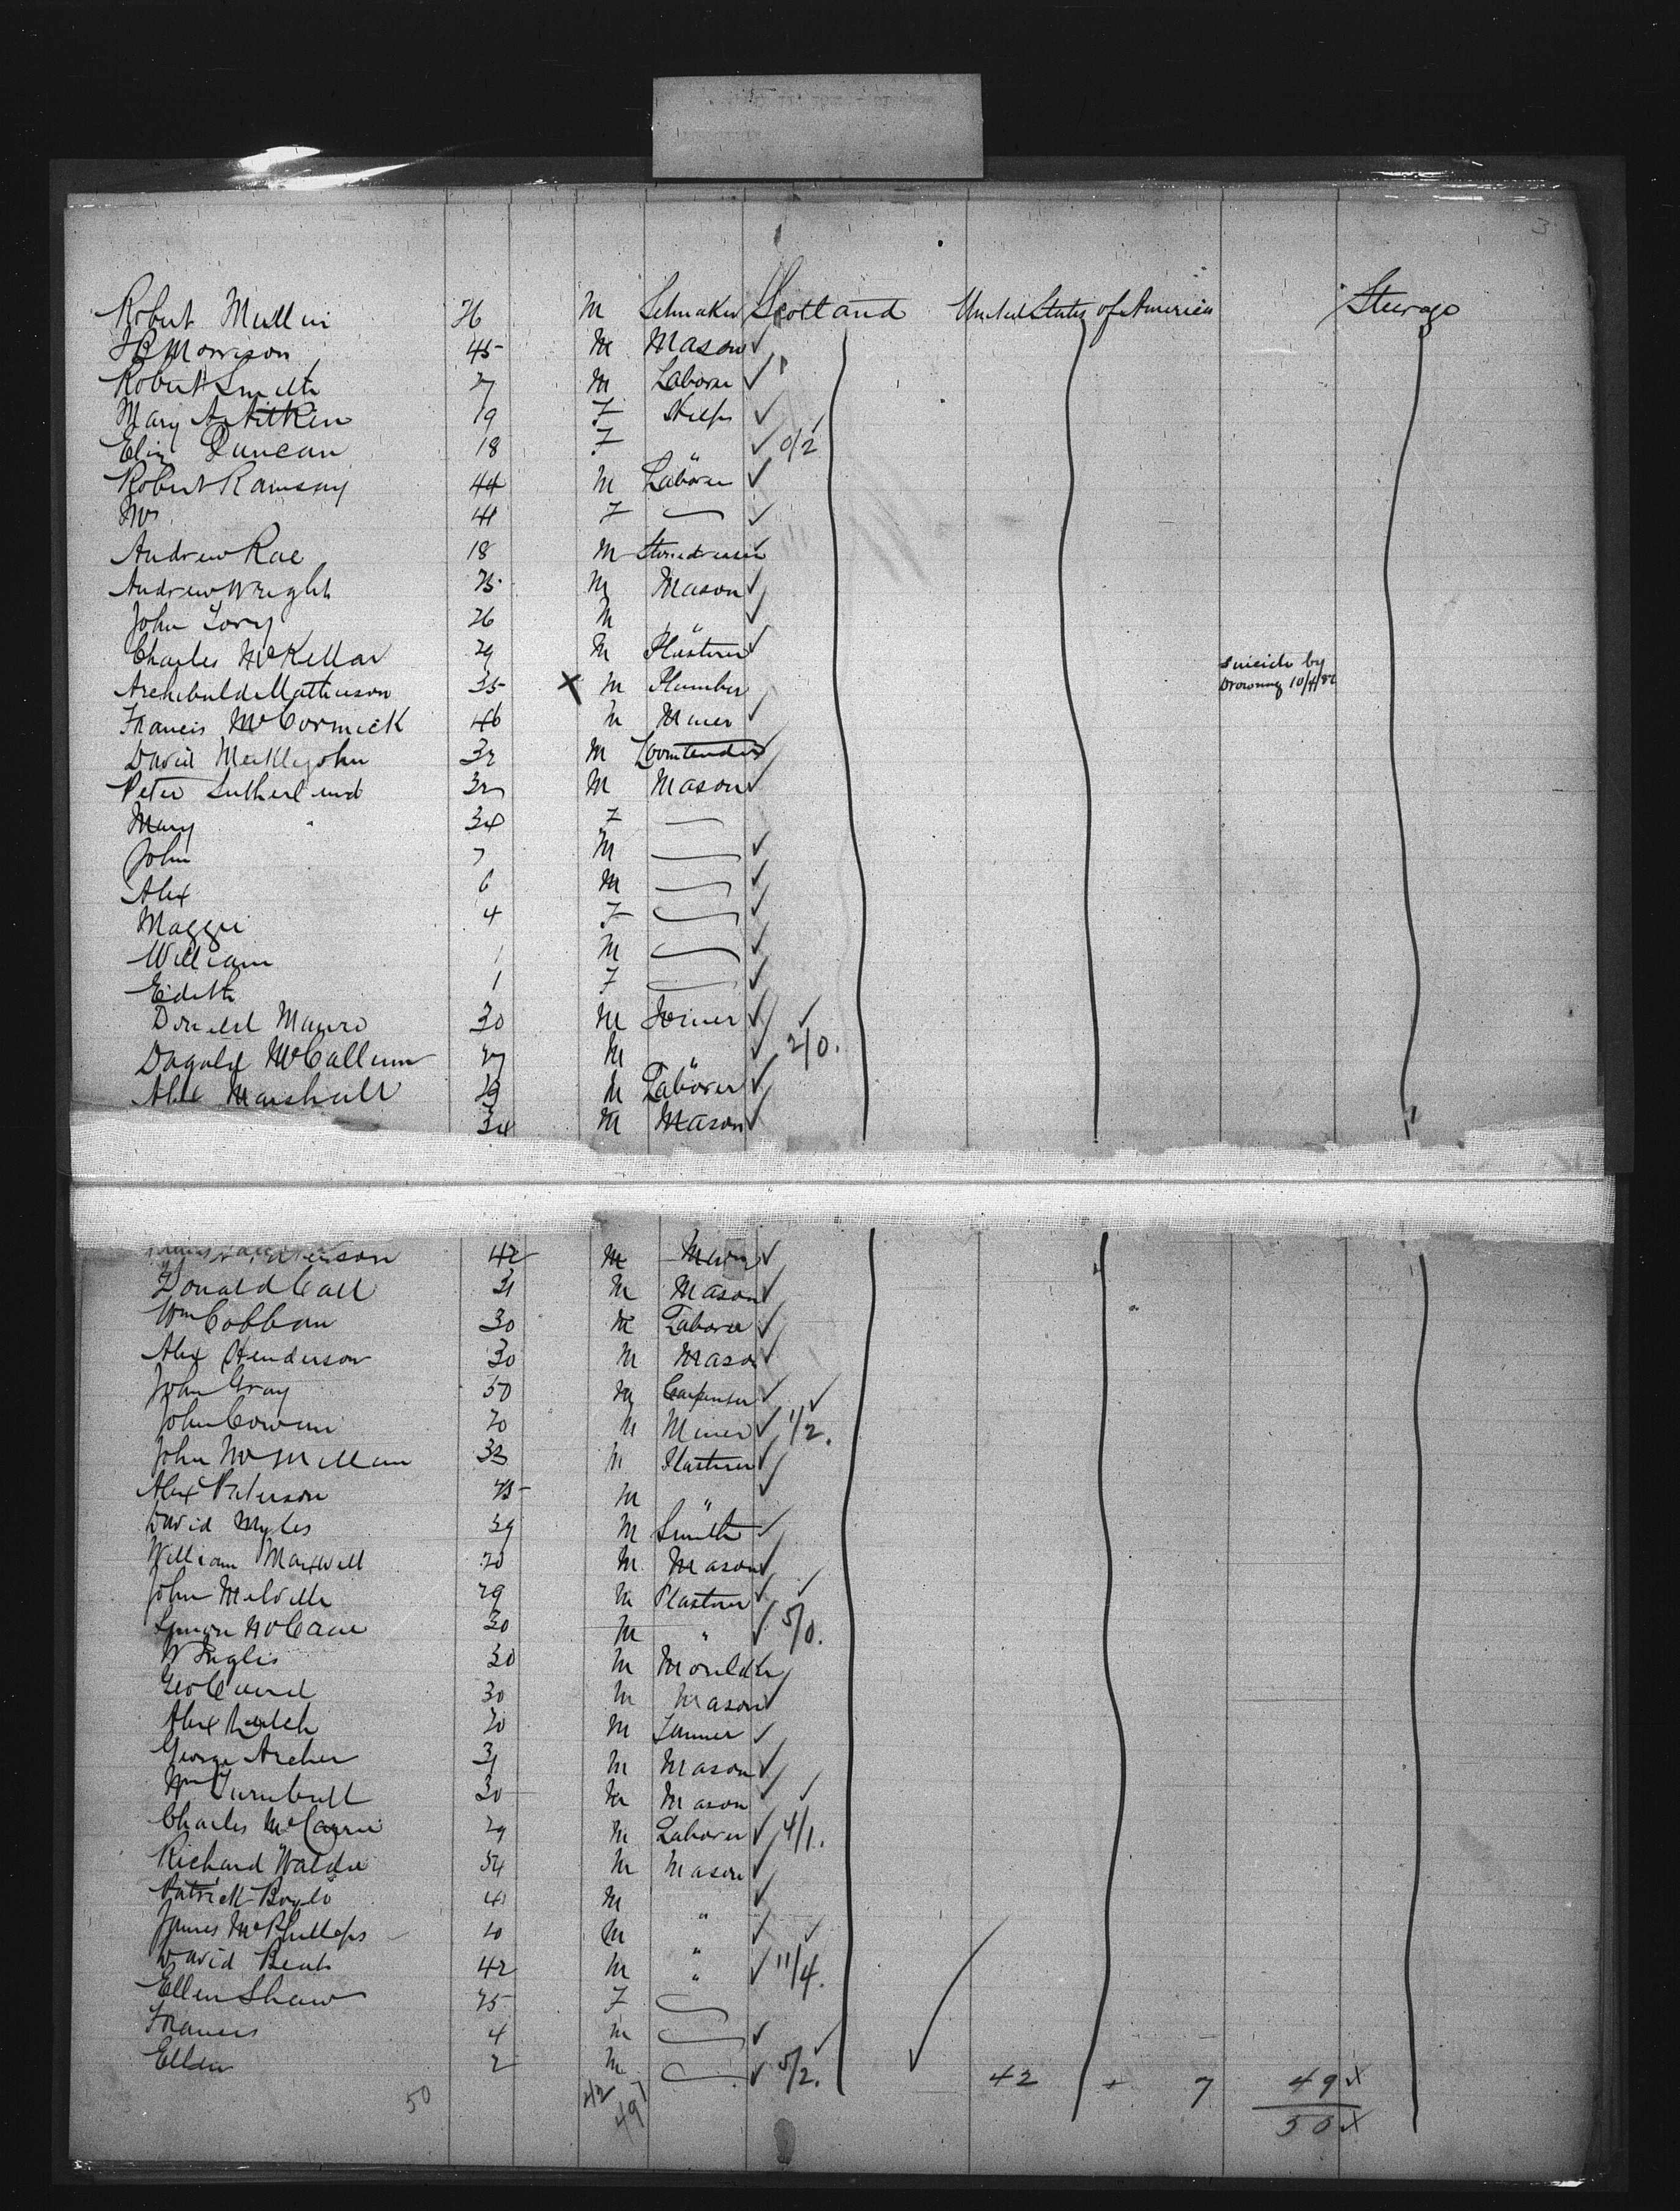 3
Robert Mullin 26 M Scotland United States of America Steerage
Morrison 45 M Mason
Robert Smith 27 M Laborer
Mary A Aitken 19 F
Eliz Duncan 18 F " 0/2
Robert Ramsay 44 M Laborer
Mrs 41 F
Andrew Rae 18 M
Andrew Wright 25 M Mason
John 26 M "
Charles McKellar 29 M Plasterer
Archibald Mathieson 35 X M Plumber Suicide by Drowning 10/4/82
Francis McCormick 46 M Miner
David Meiklejohn 32 M Loomtender
Peter Sutherland 32 M Mason
Mary " 34 F
John 7 M
Alex 6 M
Maggie 4 F
William 1 M
Edith 1 F
Donald Munro 30 M Joiner
Dugald McCallum 27 M " 2/0.
Alex Marshall M Laborer
34 M Mason
42 M
Donald Call 21 M Mason
Wm Cobban 30 M Laborer
Alex Henderson 30 M Mason
John Gray 50 M Carpenter
John Cowan 20 M Miner 1/2.
John McMillan 33 M Plasterer
Alex Paterson 25 M "
David Myles 39 M Smith
William Maxwell 20 M Mason
John Melville 29 M Plasterer
Simon McCaw 30 M " 5/0.
W Inglis 30 M Moulder
Geo 30 M Mason
Alex 20 M
George Archer 31 M Mason
Wm Turnbull 30 M Mason
Charles 29 M Laborer 4/1.
Richard 54 M Mason
Patrick Boyle 41 M "
James McPhillips M "
David 42 M " 11/4.
Ellen Shaw 25 F
Francis 4 M
2 M 5/2.
42 + 7 49 x
50 42 7 49 50 x